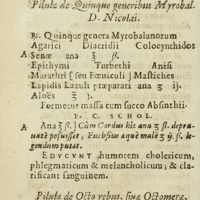 Pilulæ de Quinque generibus Myrobal.
D. Nicolai.
℞. Quinque genera Myrobalanorum
Agarici Diacridii Colocynthidos
A Senæ ana ℥ ß.
Epithymi Turbethi Anisi
Marathri ſeu Fœniculi ] Maſtiches
Lapidis Lazuli præparata ana ʒ ij.
Aloës ℥ j.
Formetur maſſa cum ſucco Abſinthii.
P. C. SCHOL.
A Ana ℥ ß. ] Cum Cordus hîc ana ʒ ß. depra-
uatè poſuiſſet, Fuchſius æquè malè ʒ ij. ß. le-
gendum putat.
EDVCVNT humorem cholericum,
phlegmaticum & melancholicum; & cla-
rificant ſanguinem.
Pilulæ de Octo rebus, ſiue Octomera,